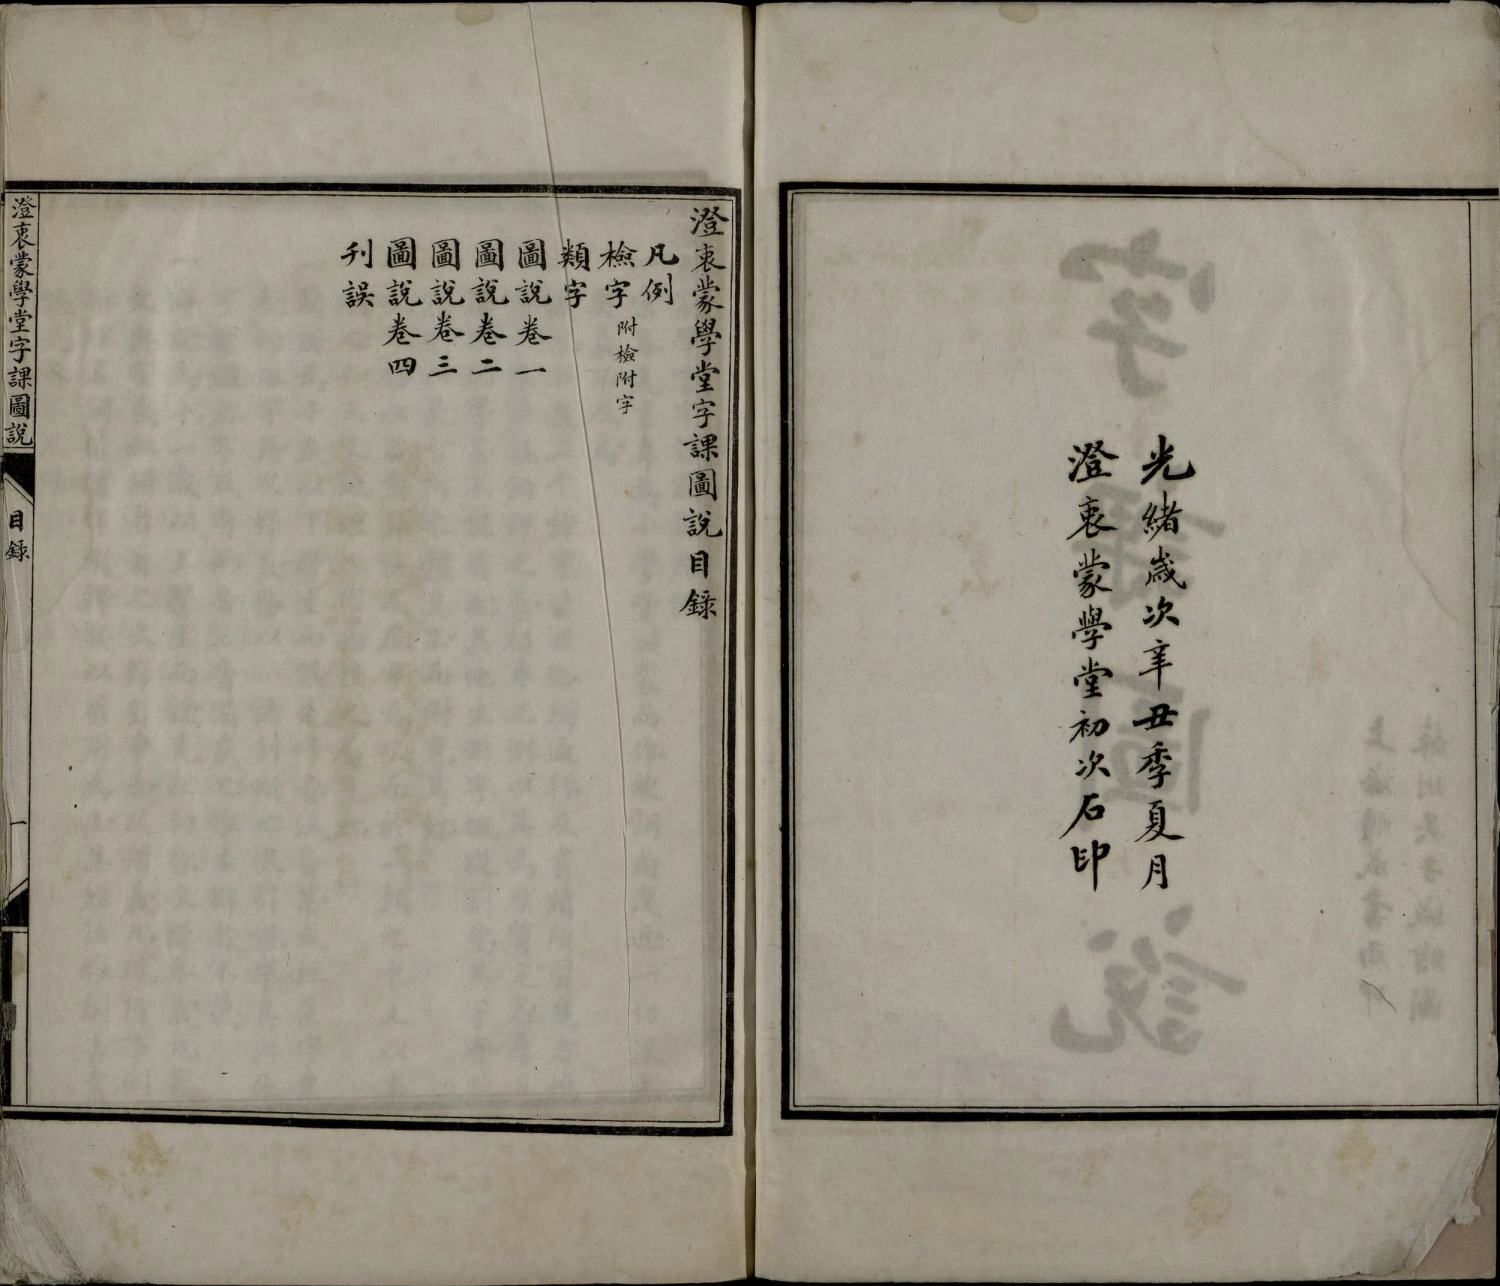 光緒歲次辛丑季夏月
澄衷蒙學堂初次石印
澄衷蒙學堂字課圖說目錄
凡例
檢字附檢附字
類字
圖說卷一
圖說卷二
圖說卷三
圖說卷四
刊誤
澄衷蒙學堂字課圖說
目錄
一